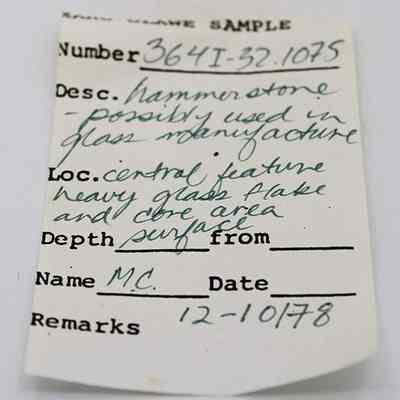 SAMPLE
Number 364I-32.1075
Desc. hammerstone
- possibly used in
glass manufacture
Loc. central feature
heavy glass flake
and core area
Depth surface from
Name M.C. Date
Remarks 12-10/78